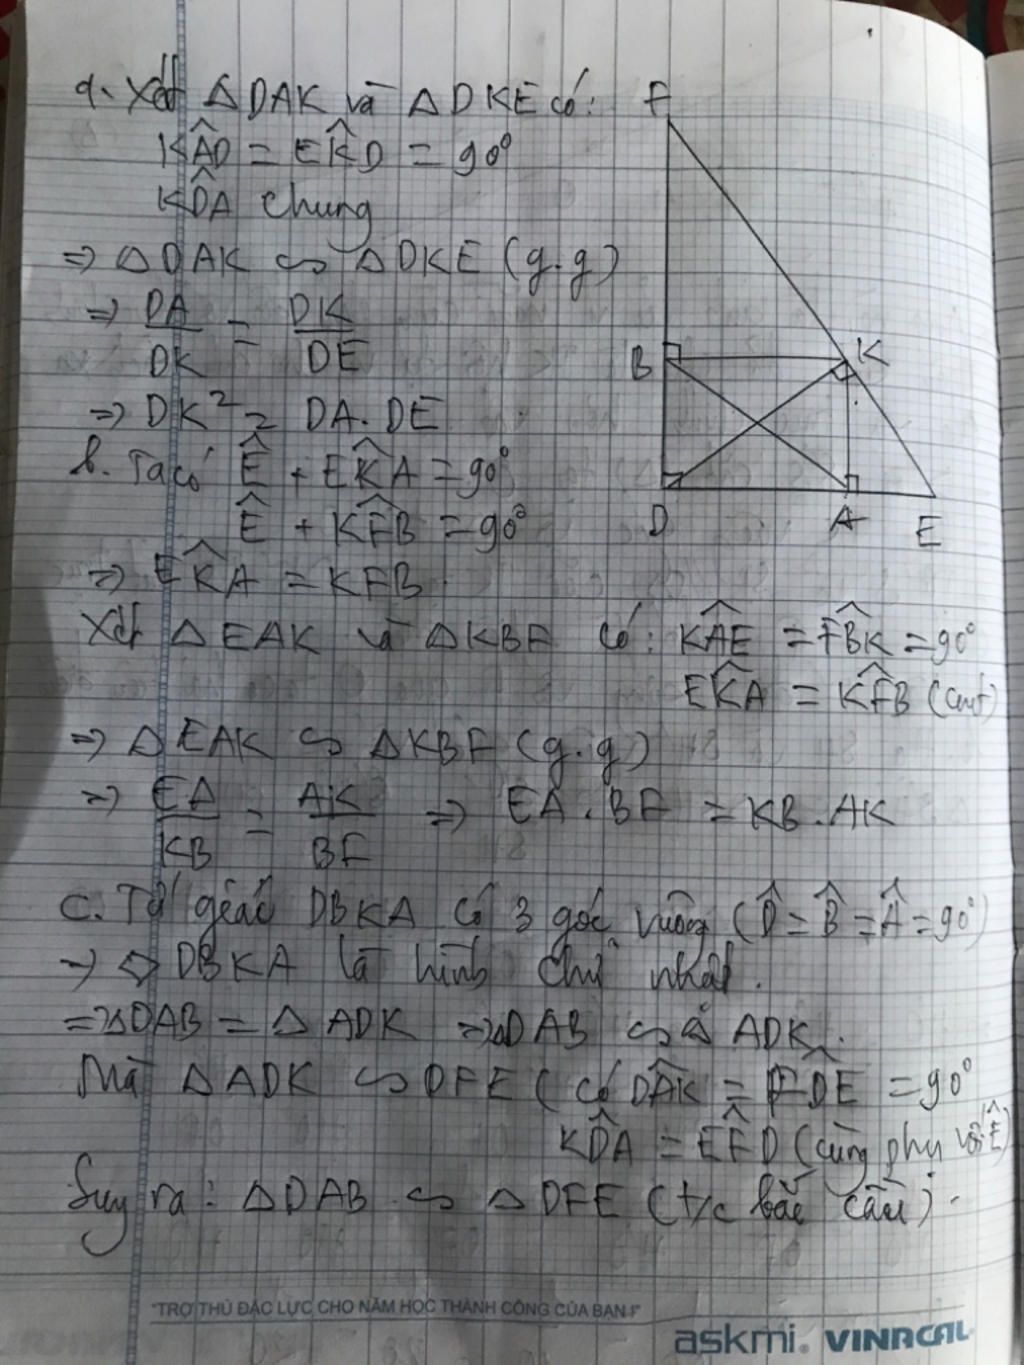 a. Xét △DAK và △DKE có:
KÂD = EK̂D = 90°
KD̂A chung
=> △DAK ∽ △DKE (g.g)
=> DA/DK = DK/DE
=> DK² = DA.DE
b. Ta có Ê + EK̂A = 90°
Ê + KF̂B = 90°
=> EK̂A = KFB
Xét △EAK và △KBF có: KÂE = FB̂K = 90°
EK̂A = KF̂B (cmt)
=> △EAK ∽ △KBF (g.g)
=> EA/KB = AK/BF => EA.BF = KB.AK
C. Tứ giác DBKA có 3 góc vuông (D̂ = B̂ = Â = 90°)
-> ▱DBKA là hình chữ nhật.
=> △DAB = △ADK => △DAB ∽ △ADK.
Mà △ADK ∽ DFE (có DÂK = FD̂E = 90°
KD̂A = EF̂D (cùng phụ với Ê)
Suy ra: △DAB ∽ △DFE (t/c bắc cầu).
F
B
K
D
A
E
"TRỢ THỦ ĐẮC LỰC CHO NĂM HỌC THÀNH CÔNG CỦA BẠN!"
askmi. VINACAL